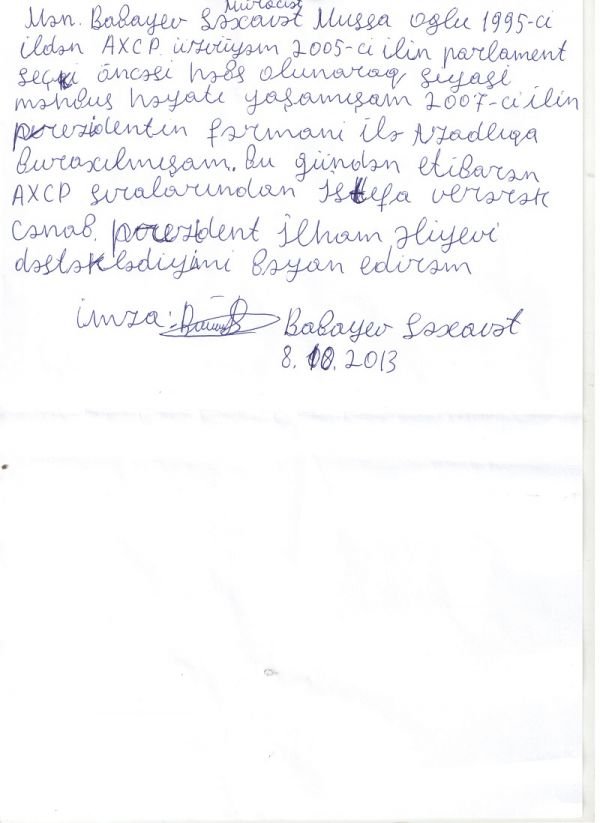 Müraciət
Mən. Babayev Səxavət Mussa oglu 1995-ci
ildən AXCP. üzvüyəm 2005-ci ilin parlament
seçki öncəsi həbs olunaraq siyasi
məhbus həyatı yaşamışam 2007-ci ilin
prezidentin fərmani ilə Azadlıqa
buraxılmışam. bu gündən etibarən
AXCP sıralarından istefa verərək
Cənab. prezident ilham əliyevi
dəstəklədiyimi bəyan edirəm
imza: Babayev Səxavət
8. 10. 2013